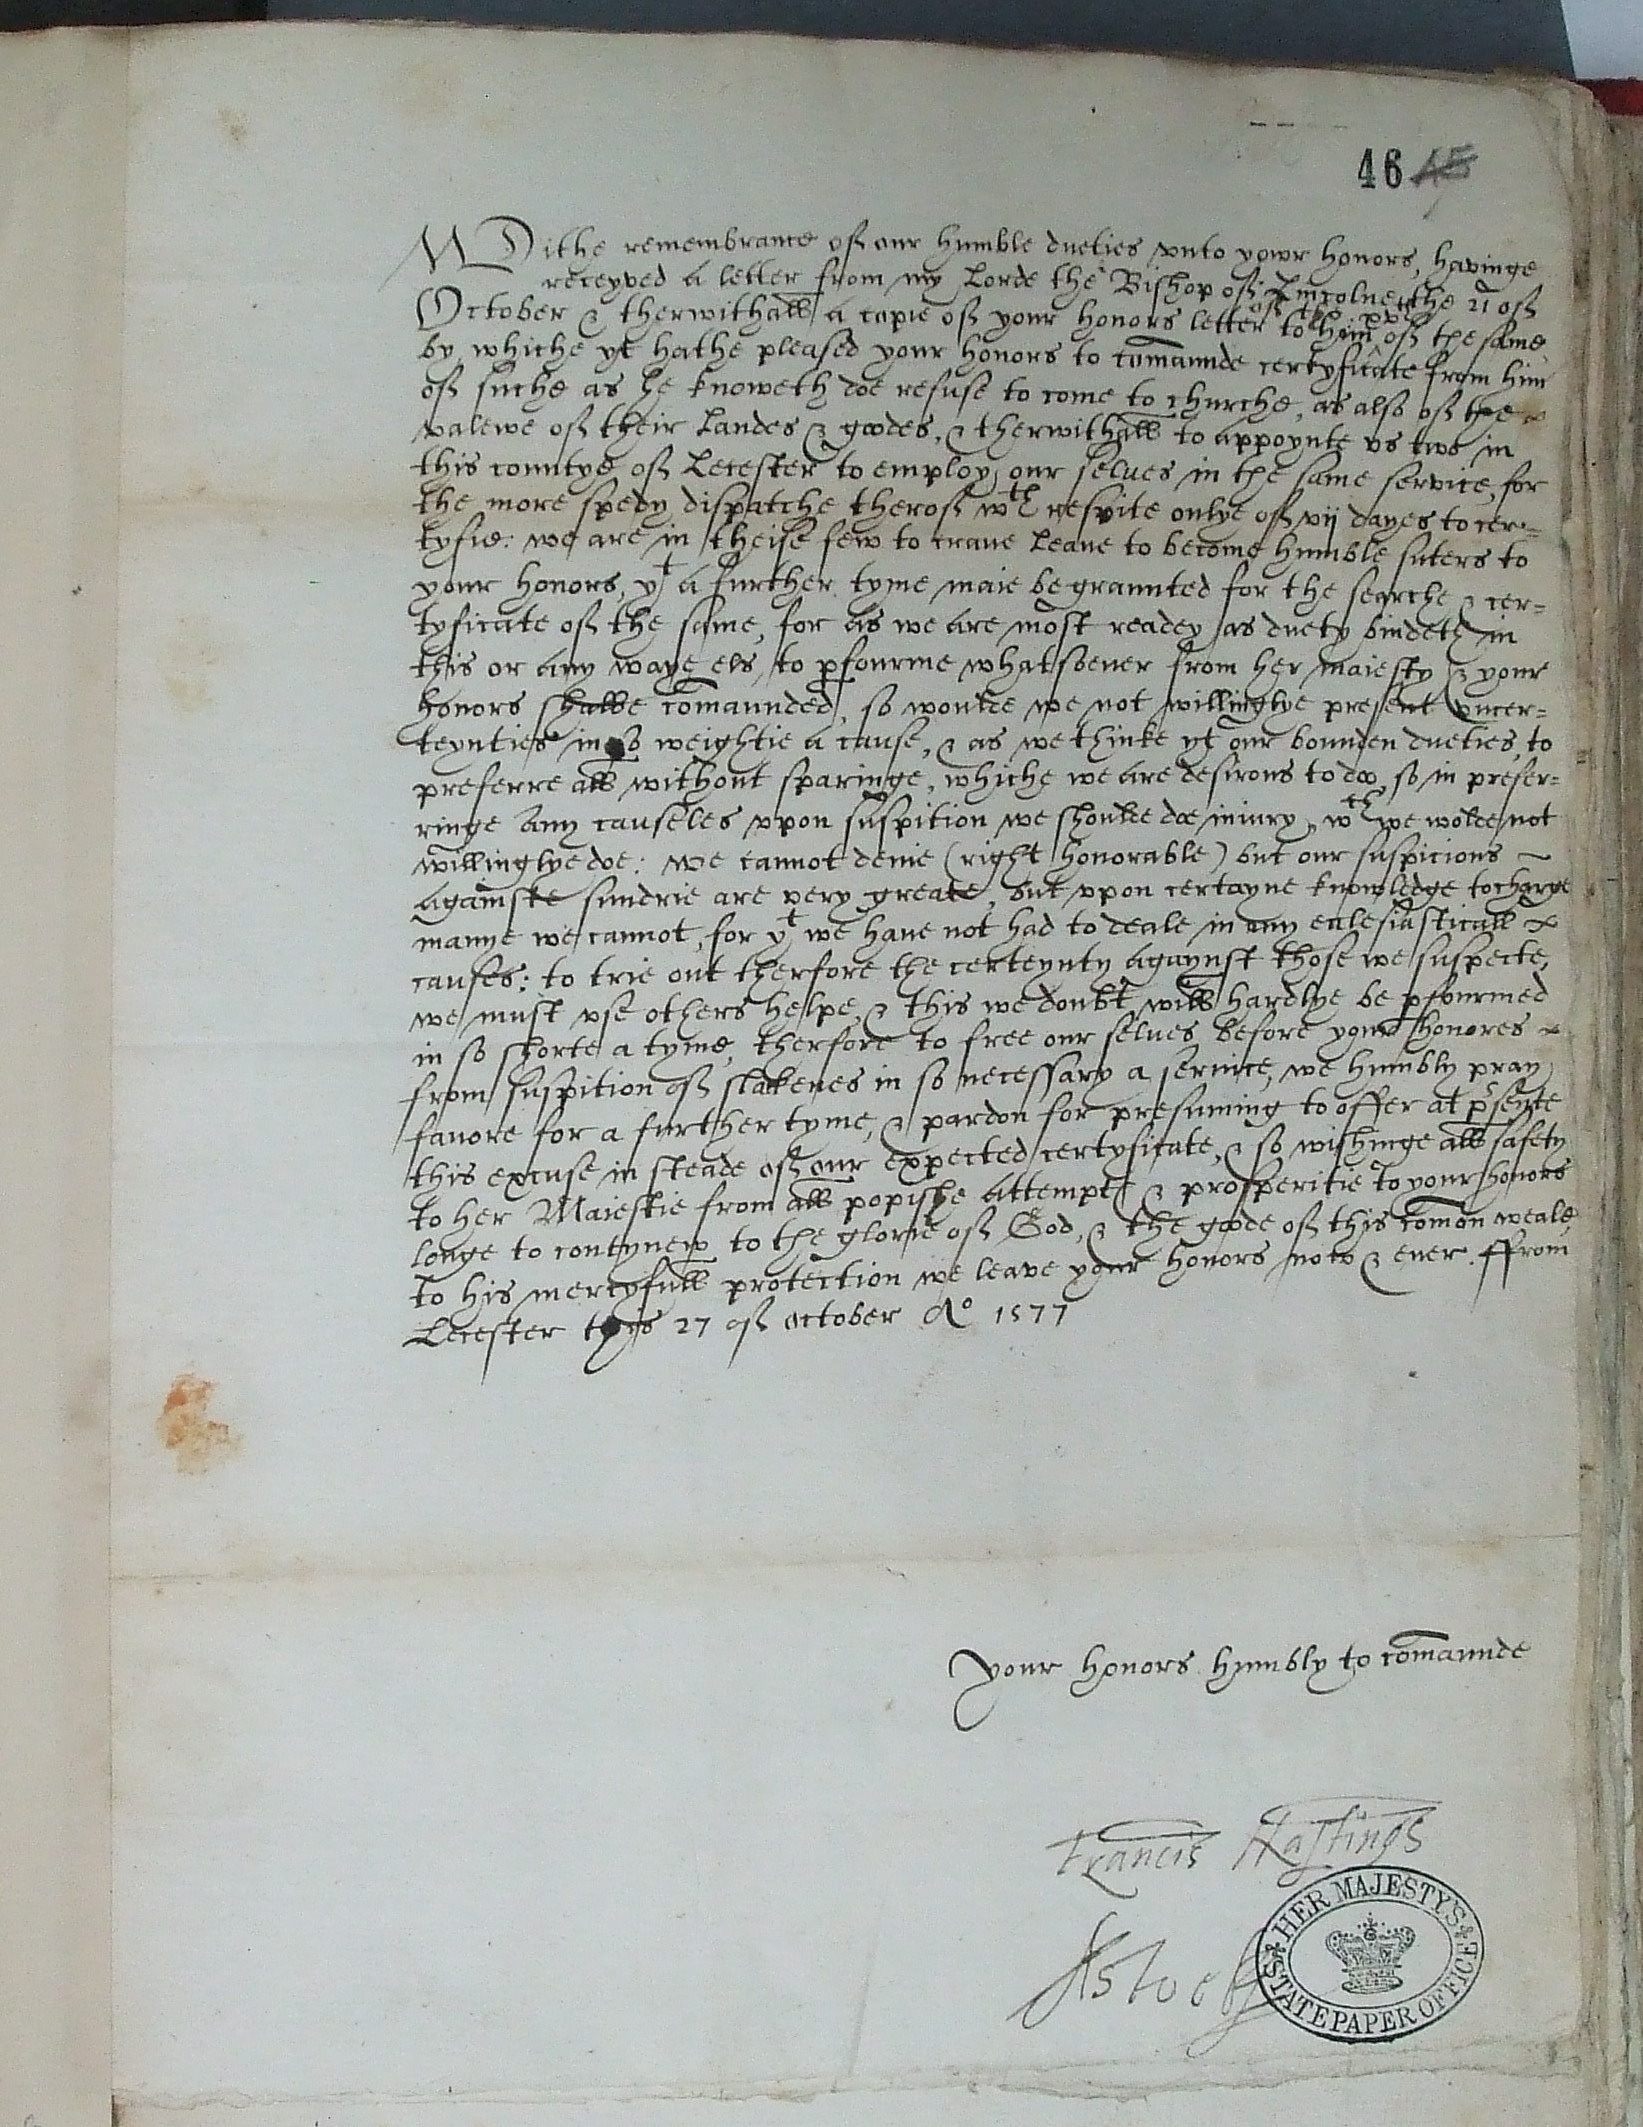 46 45
Withe remembrance of our humble dueties vnto yowr honors, havinge
receyved a letter from my Lorde the Bishop of Lincolne, the 21 of
October & therwithall a copie of your honors letter to him of the same
by whiche yt hathe pleased your honors to comaunde certyficate from him
of suche as he knoweth doe refuse to come to churche, as also of the
valewe of their Landes & goodes, & therwithall to appoynte vs two in
this countye of Lecester to employ our selues in the same service, for
the more spedy dispatche therof wth respite onlye of vij dayes to cer=
tyfie: we are in theise few to craue leaue to become humble suters to
your honors, yt a further tyme maie be graunted for the searche & cer=
tyficate of the same, for as we are most readey as duety bindeth in
this or any waye els, to pfourme whatsoeuer from her maiesty & your
honors shalbe comaunded, so woulde we not willinglye present vncer=
teynties in so weightie a cause, & as we thinke yt our bounden dueties, to
preferre all without sparinge, whiche we are desirous to doo, so in prefer=
ringe any causeles vpon suspition we shoulde doe iniury, wch we wolde not
willinglye doe: we cannot denie (right honorable) but our suspicions
againste sundrie are very greate, but vpon certayne knowledge to charge
manye we cannot, for yt we haue not had to deale in any eclesiasticall
causes: to trie out therfore the certeynty agaynst those we suspecte,
we must vse others helpe, & this we doubt will hardlye be pfourmed
in so shorte a tyme, therfore to free our selues before your honores
from suspition of slakenes in so necessary a seruice, we humbly pray
fauore for a further tyme, & pardon for presuming to offer at psente
this excuse in steade of our expected certyficate, & so wishinge all safety
to her Maiestie from all popishe attempts & prosperitie to your honors
longe to contynew to the glorie of God, & the goode of this comon weale,
to his mercyfull protection we leave your honors now & euer. ffrom
Lecester this 27 of october Ao 1577
your honors humbly to comaunde
Francis Hastings
HER MAJESTY'S
STATE PAPER OFFICE